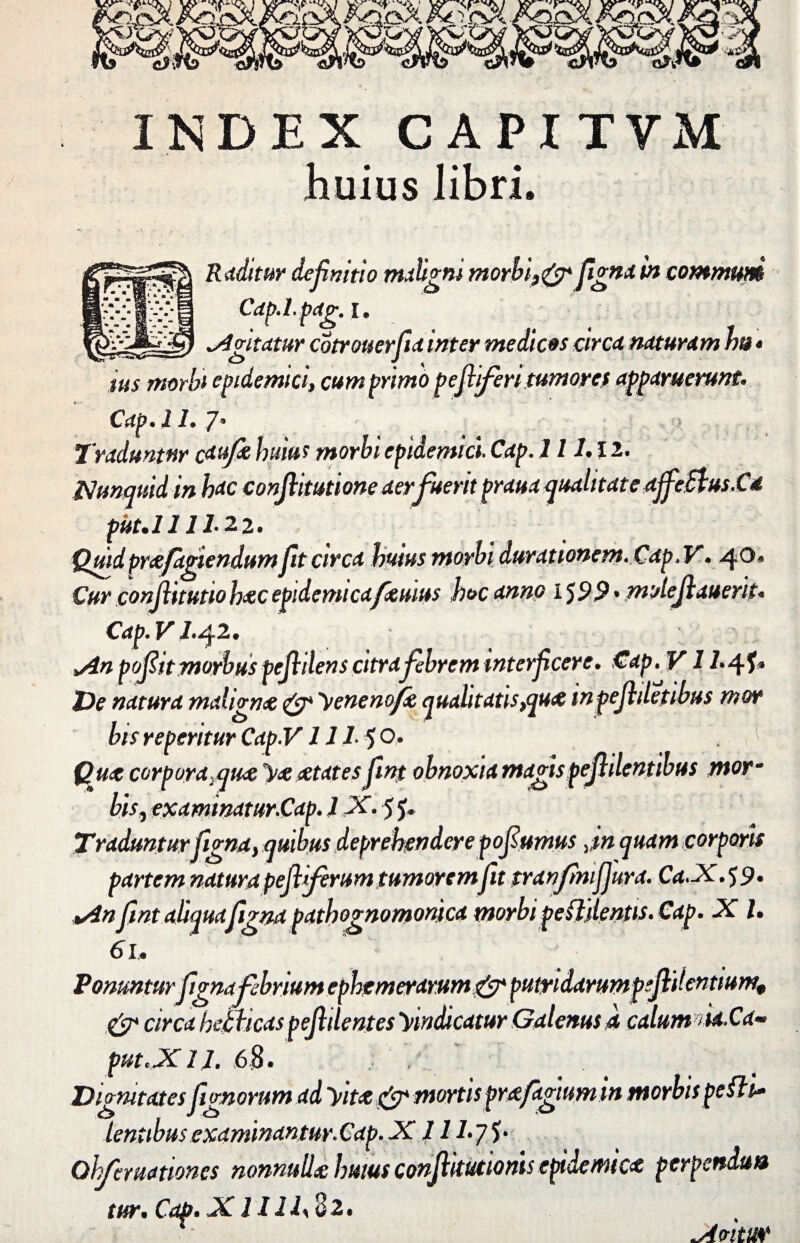 INDEX CAPITVM
huius libri.
TRaditur definitio maligni morbi, & signa in communi
Cap.I.pag. 1.
Agitatur cōtrouersia inter medicos circa naturam hu-
ius morbi epidemici, cum primò pestiferi tumores apparuerunt.
Cap.II. 7.
Traduntur causæ huius morbi epidemici. Cap. III. 12.
Nunquid in hac constitutione aer fuerit praua qualitate affectus. Ca
put.IIII. 22.
Quid præsagiendum sit circa huius morbi durationem. Cap.V. 40.
Cur constitutio hæc epidemica sæuius hoc anno 1599. molestauerit.
Cap.VI.42.
An possit morbus pestilens citra febrem interficere. Cap. VII.45.
De natura malignæ & venenosæ qualitatis,quæ in pestilētibus mor
bis reperitur Cap.VIII. 50.
Quæ corpora,quæ væ ætates sint obnoxia magis pestilentibus mor-
bis, examinatur.Cap. IX. 55.
Traduntur signa, quibus deprehendere possumus ,in quam corporis
partem natura pestiferum tumorem sit transmissura. Ca.X.59.
An sint aliqua signa pathognomonica morbi pestilentis. Cap. XI.
61.
Ponuntur signa febrium ephemerarum & putridarum pestilentium,
& circa hecticas pestilentes vindicatur Galenus à calumnia.Ca-
put.XII. 68.
Dignitates signorum ad vitæ & mortis præsagium in morbis pesti-
lentibus examinantur.Cap. XIII.75.
Obseruationes nonnullæ huius constitutionis epidemicæ perpendun
tur. Cap. XIIII. 82.
Agitur